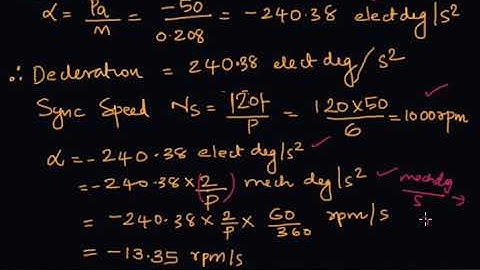 α = Pa/M = -50/0.208 = -240.38 elect deg/s²
∴ Decleration = 240.38 elect deg/s²
Sync Speed Ns = 120f/P = 120×50/6 = 1000rpm
α = -240.38 elect deg/s²
= -240.38 × (2/P) mech deg/s² mech deg/s
= -240.38 × 2/P × 60/360 rpm/s
= -13.35 rpm/s